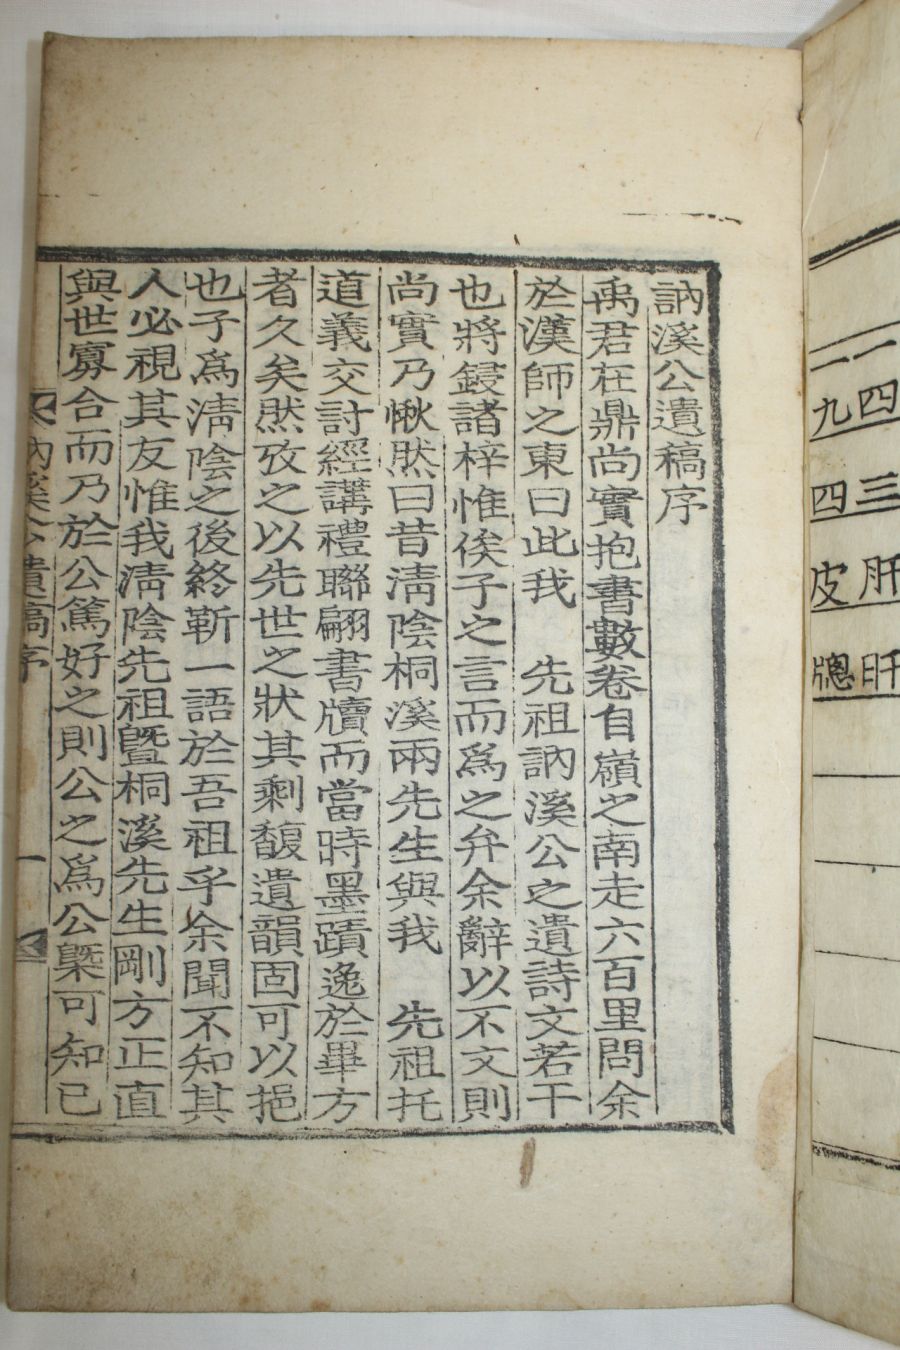 訥溪公遺稿序
禹君在鼎尚實抱書數卷自嶺之南走六百里問余
於漢師之東曰此我 先祖訥溪公之遺詩文若干
也將鋟諸梓惟俟子之言而爲之弁余辭以不文則
尚實乃愀然曰昔淸陰桐溪兩先生與我 先祖托
道義交討經講禮聯翩書牘而當時墨蹟逸於畢方
者久矣然攷之以先世之狀其剩馥遺韻固可以挹
也子爲淸陰之後終靳一語於吾祖乎余聞不知其
人必視其友惟我淸陰先祖曁桐溪先生剛方正直
與世寡合而乃於公篤好之則公之爲公槩可知已
訥溪公遺稿序 一
一四三肝肝
一九四皮總